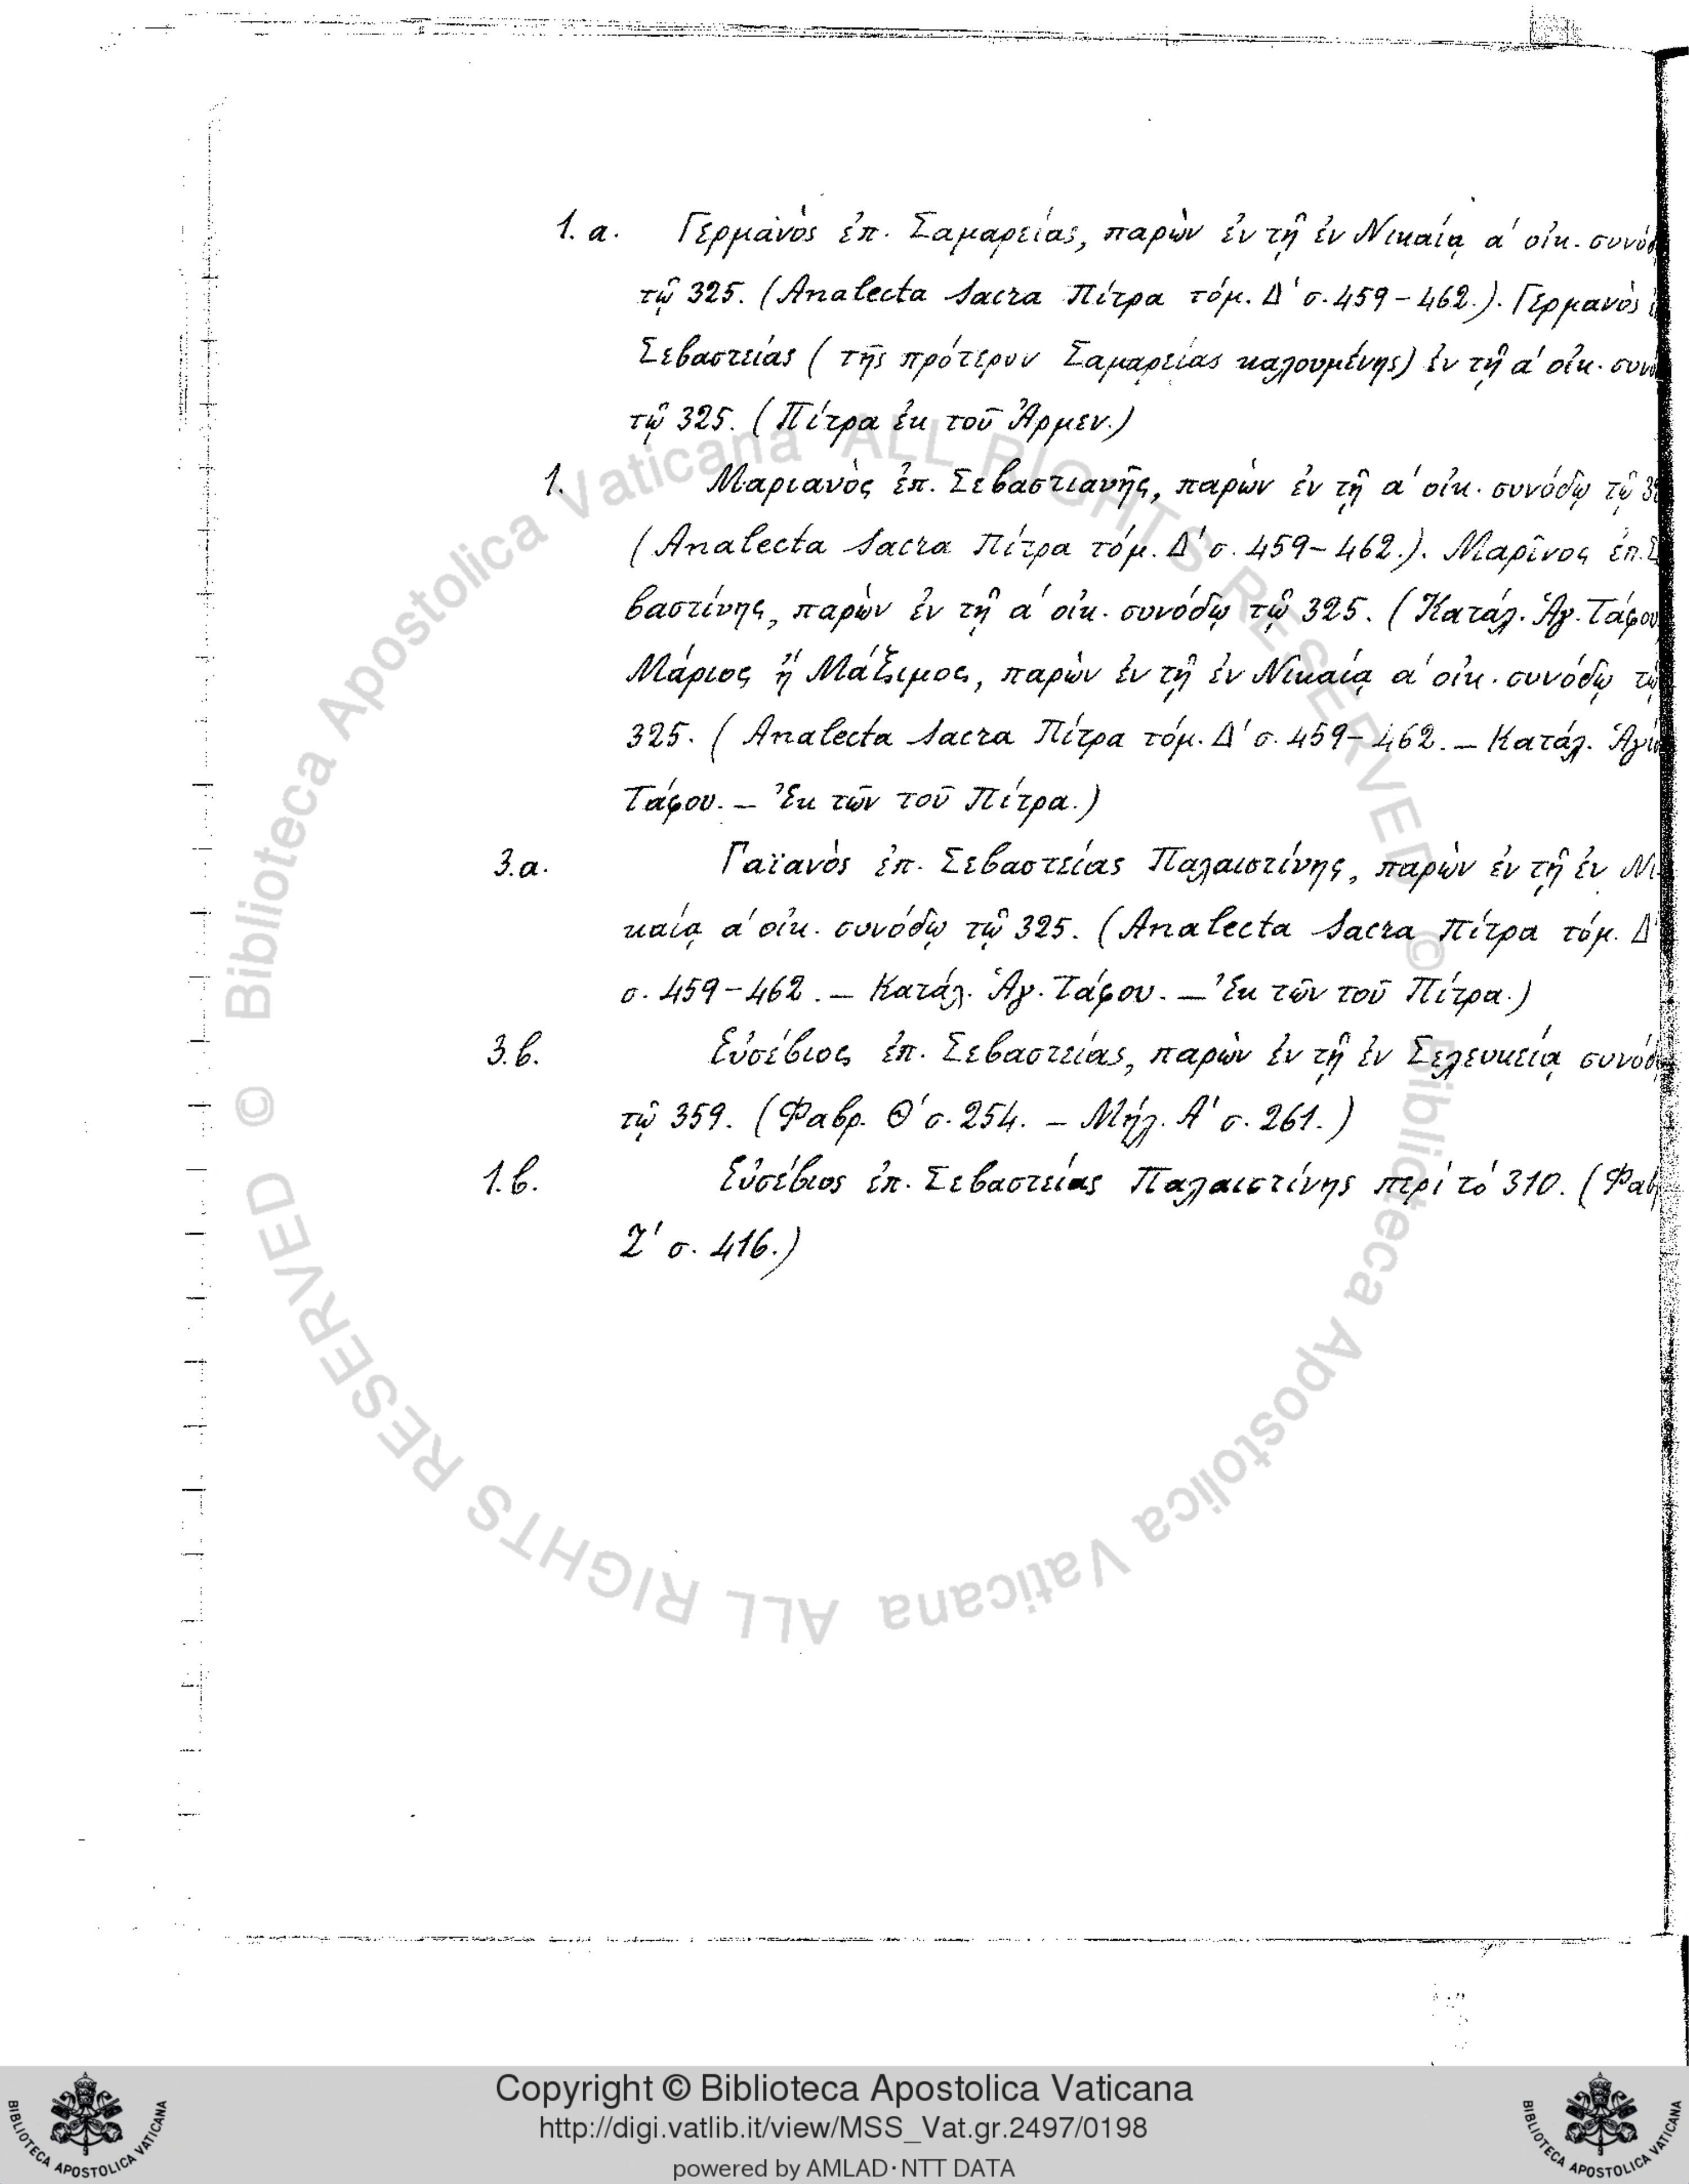 1. α. Γερμανὸς ἐπ. Σαμαρείας, παρὼν ἐν τῇ ἐν Νικαίᾳ α΄ οἰκ. συνόδ
τῷ 325. (Analecta Sacra Πίτρα τόμ. Δ΄ σ. 459-462.). Γερμανὸς
Σεβαστείας (τῆς πρότερον Σαμαρείας καλουμένης) ἐν τῇ α΄ οἰκ. συν
τῷ 325. (Πίτρα ἐκ τοῦ Ἀρμεν.)
1. Μαριανὸς ἐπ. Σεβαστιανῆς, παρὼν ἐν τῇ α΄ οἰκ. συνόδῳ τῷ 3
(Analecta Sacra Πίτρα τόμ. Δ΄ σ. 459-462.). Μαρῖνος ἐπ. Σ
βαστίνης, παρὼν ἐν τῇ α΄ οἰκ. συνόδῳ τῷ 325. (Κατάλ. Ἁγ. Τάφου
Μάριος ἢ Μάξιμος, παρὼν ἐν τῇ ἐν Νικαίᾳ α΄ οἰκ. συνόδῳ τῷ
325. (Analecta Sacra Πίτρα τόμ. Δ΄ σ. 459-462. — Κατάλ. Ἁγί
Τάφου. — Ἐκ τῶν τοῦ Πίτρα.)
3.α. Γαϊανὸς ἐπ. Σεβαστείας Παλαιστίνης, παρὼν ἐν τῇ ἐν Νι
καίᾳ α΄ οἰκ. συνόδῳ τῷ 325. (Analecta Sacra Πίτρα τόμ. Δ΄
σ. 459-462. — Κατάλ. Ἁγ. Τάφου. — Ἐκ τῶν τοῦ Πίτρα.)
3.β. Εὐσέβιος ἐπ. Σεβαστείας, παρὼν ἐν τῇ ἐν Σελευκείᾳ συνόδ
τῷ 359. (Φαβρ. Θ΄ σ. 254. — Μήλ. Α΄ σ. 261.)
1.β. Εὐσέβιος ἐπ. Σεβαστείας Παλαιστίνης περὶ τὸ 310. (Φαβ
Ζ΄ σ. 416.)
© Biblioteca Apostolica Vaticana ALL RIGHTS RESERVED
© Biblioteca Apostolica Vaticana ALL RIGHTS RESERVED
Copyright © Biblioteca Apostolica Vaticana
http://digi.vatlib.it/view/MSS_Vat.gr.2497/0198
powered by AMLAD·NTT DATA
BIBLIOTECA APOSTOLICA VATICANA
BIBLIOTECA APOSTOLICA VATICANA